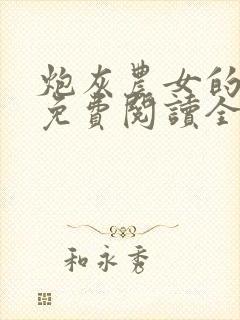 炮灰農女的
免費閱讀全
和永秀